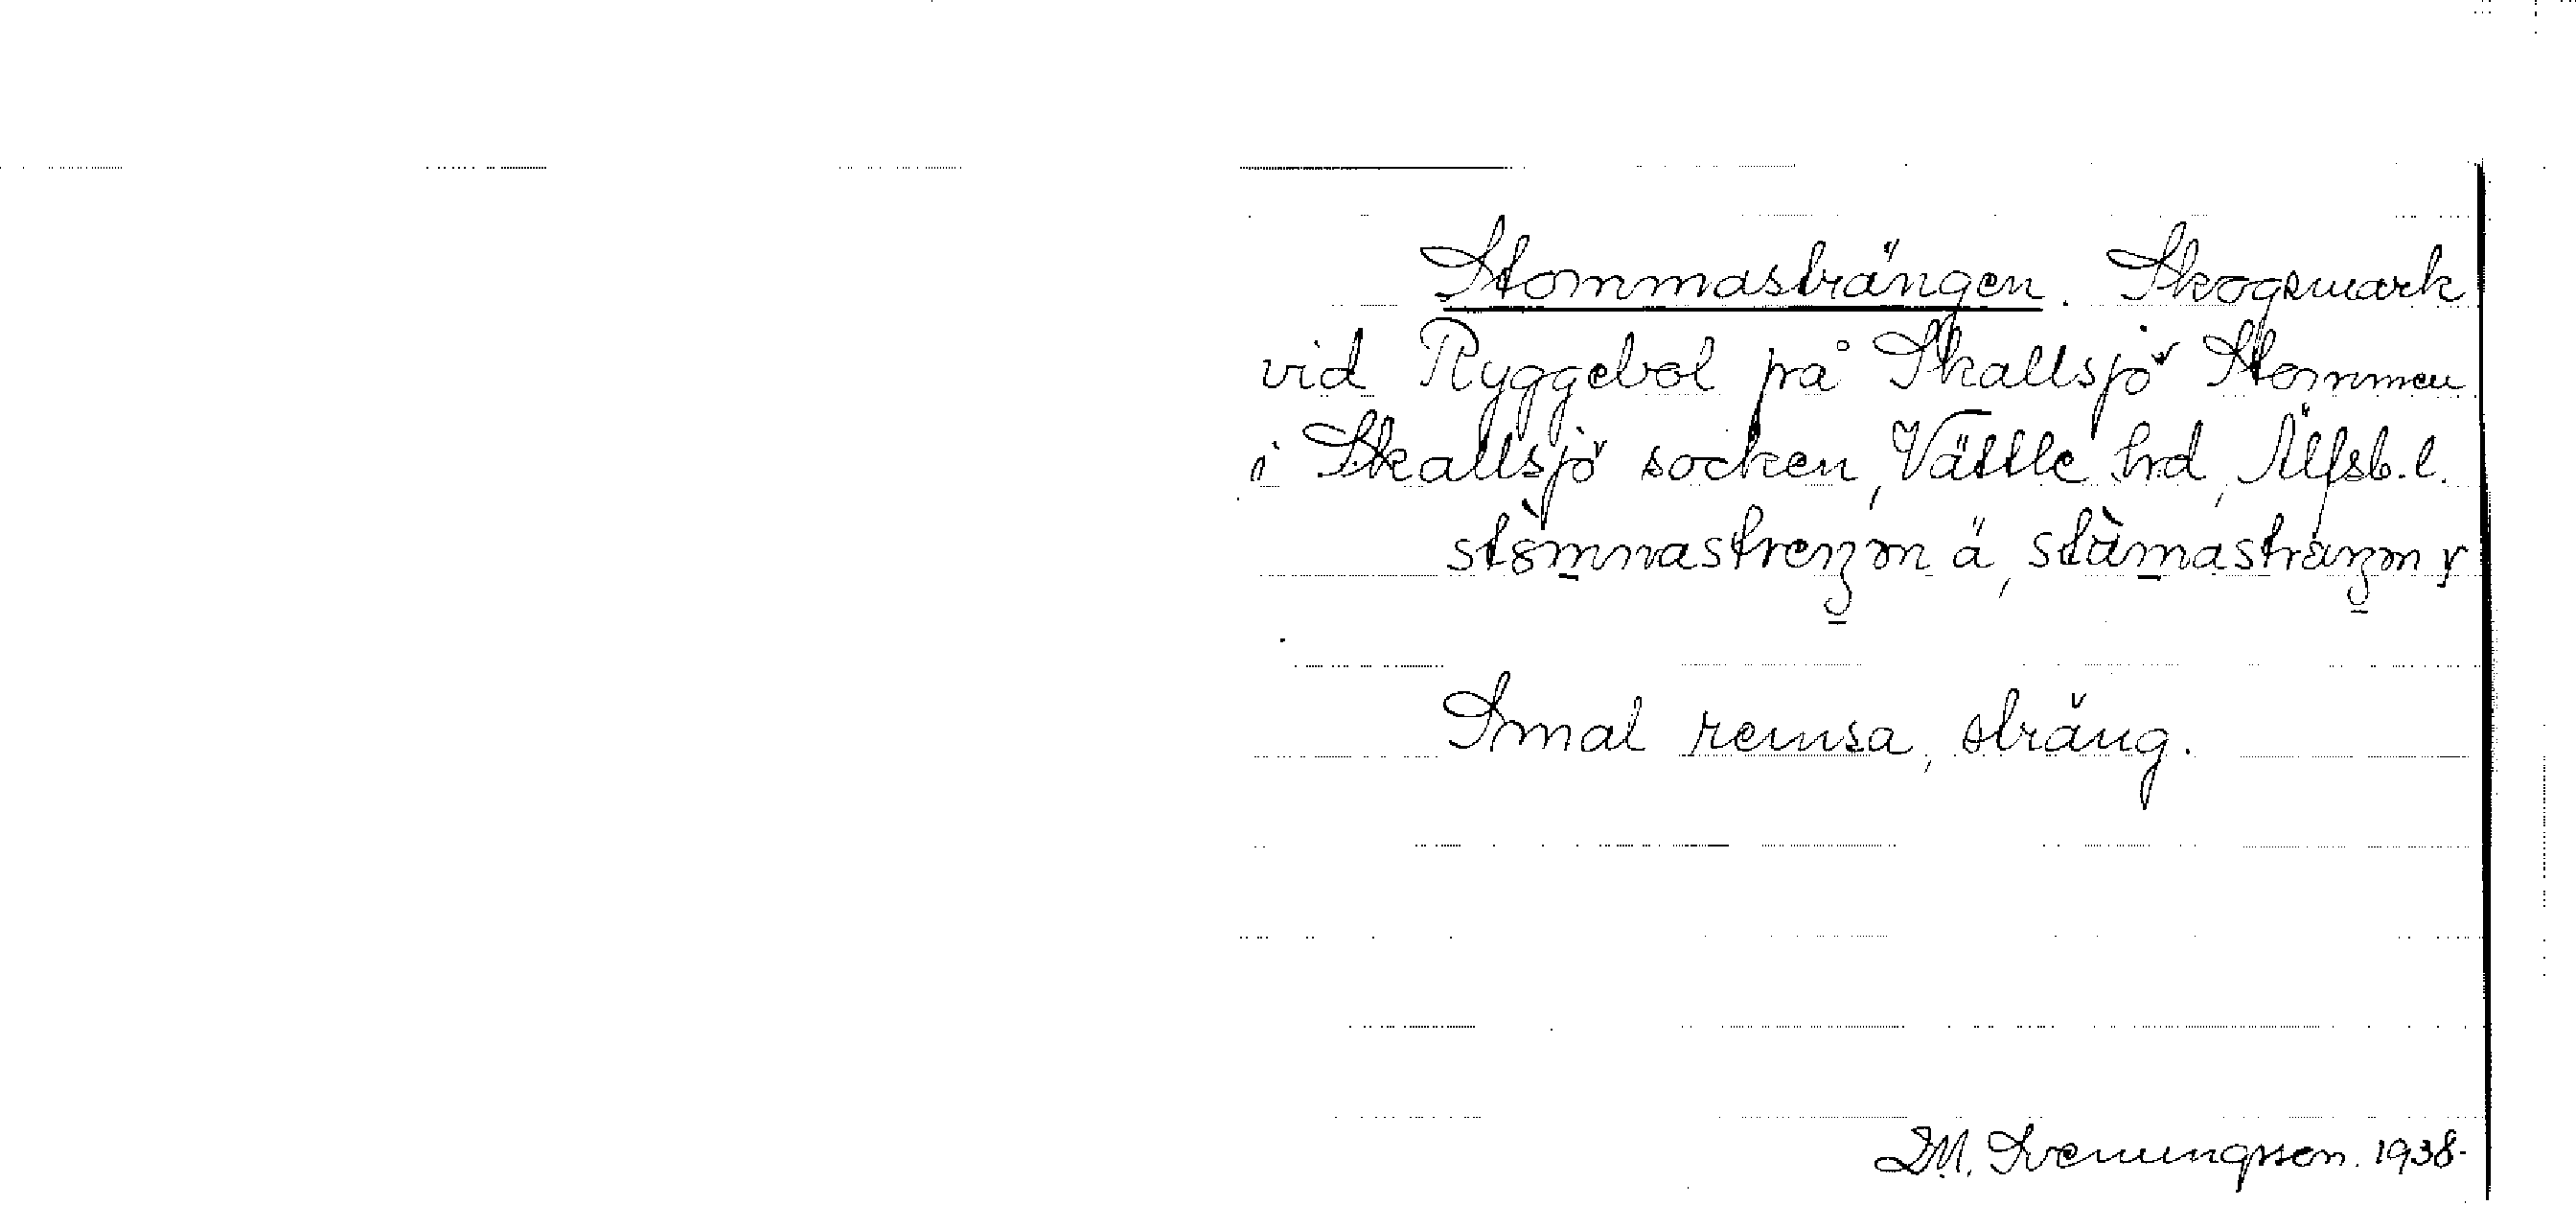 Stommasträngen. Skogsmark
vid Ryggebol på Skallsjö Stommen
i Skallsjö socken, Vättle hrd, Älfsb. l.
ä, y
Smal remsa, sträng.
D.M. Svenungsson. 1938.